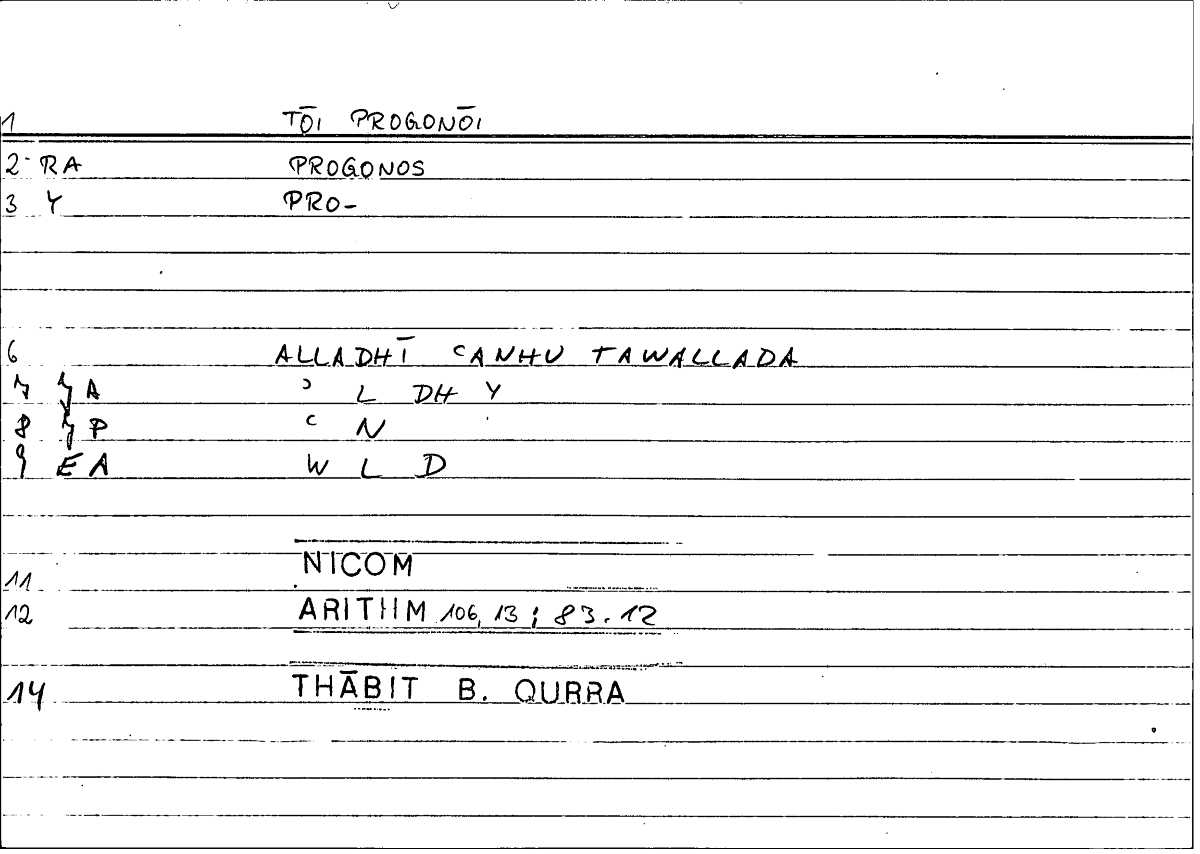 1 TŌI PROGONŌI
2 RA PROGONOS
3 Y PRO-
6 ALLADHĪ ʿANHU TAWALLADA
7 A ʾ L DH Y
8 P ʿ N
9 EA W L D
11 NICOM
12 ARITHM 106,13; 83.12
14 THĀBIT B. QURRA